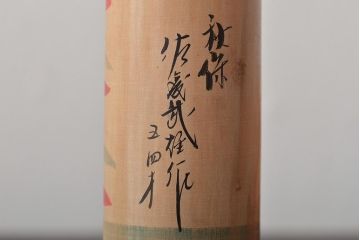 秋保
佐藤武雄作
五四才